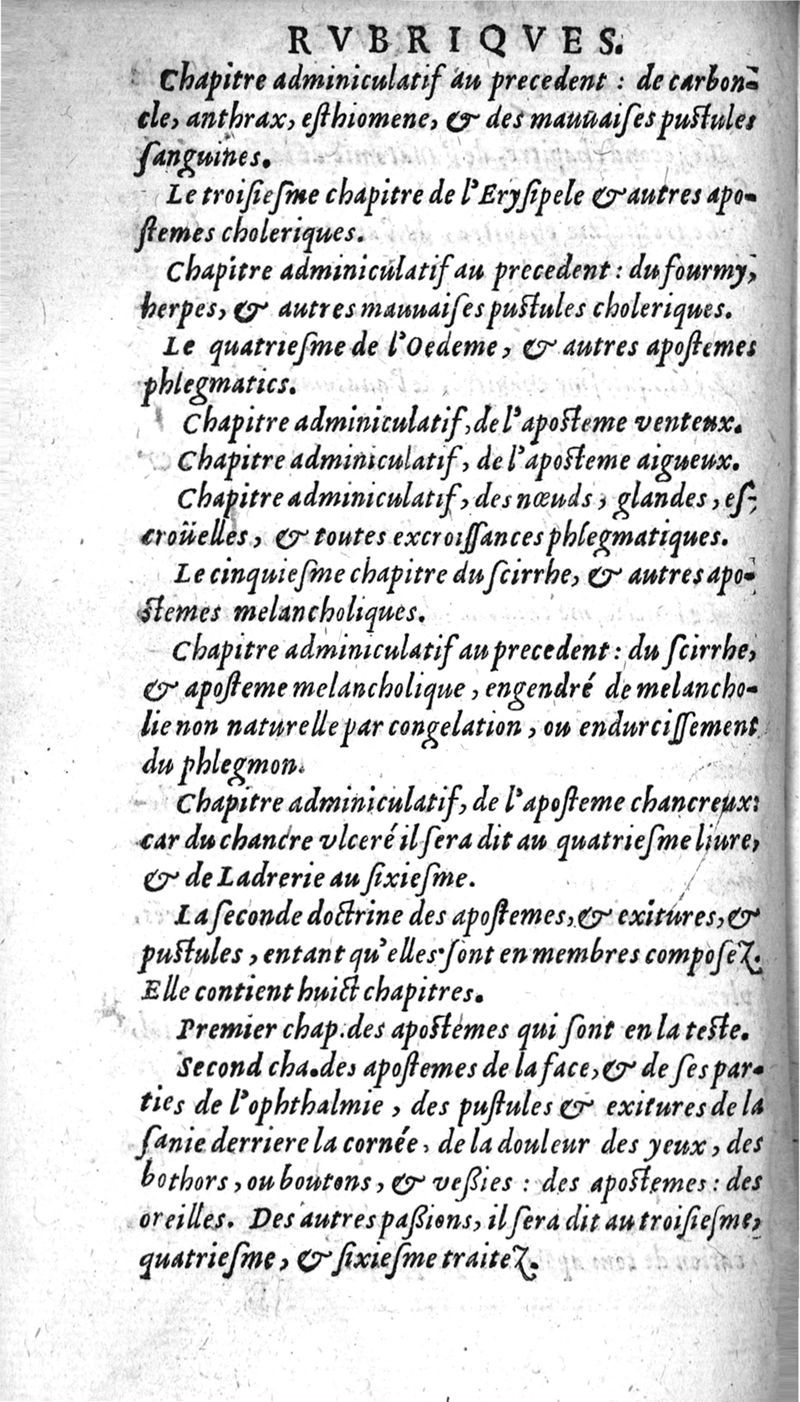 RVBRIQVES.
Chapitre adminiculatif au precedent : de carbon-
cle, anthrax, esthiomene, & des mauuaises pustules
sanguines.
Le troisiesme chapitre de l'Erysipele & autres apo-
stemes choleriques.
Chapitre adminiculatif au precedent : du fourmy,
herpes, & autres mauuaises pustules choleriques.
Le quatriesme de l'Oedeme, & autres apostemes
phlegmatics.
Chapitre adminiculatif, de l'aposteme venteux.
Chapitre adminiculatif, de l'aposteme aigueux.
Chapitre adminiculatif, des nœuds, glandes, es-
croüelles, & toutes excroissances phlegmatiques.
Le cinquiesme chapitre du scirrhe, & autres apo-
stemes melancholiques.
Chapitre adminiculatif au precedent : du scirrhe,
& aposteme melancholique, engendré de melancho-
lie non naturelle par congelation, ou endurcissement
du phlegmon.
Chapitre adminiculatif, de l'aposteme chancreux:
car du chancre vlceré il sera dit au quatriesme liure,
& de Ladrerie au sixiesme.
La seconde doctrine des apostemes, & exitures, &
pustules, entant qu'elles sont en membres composez.
Elle contient huict chapitres.
Premier chap. des apostemes qui sont en la teste.
Second cha. des apostemes de la face, & de ses par-
ties de l'ophthalmie, des pustules & exitures de la
sanie derriere la cornée, de la douleur des yeux, des
bothors, ou boutons, & vessies : des apostemes : des
oreilles. Des autres passions, il sera dit au troisiesme,
quatriesme, & sixiesme traitez.